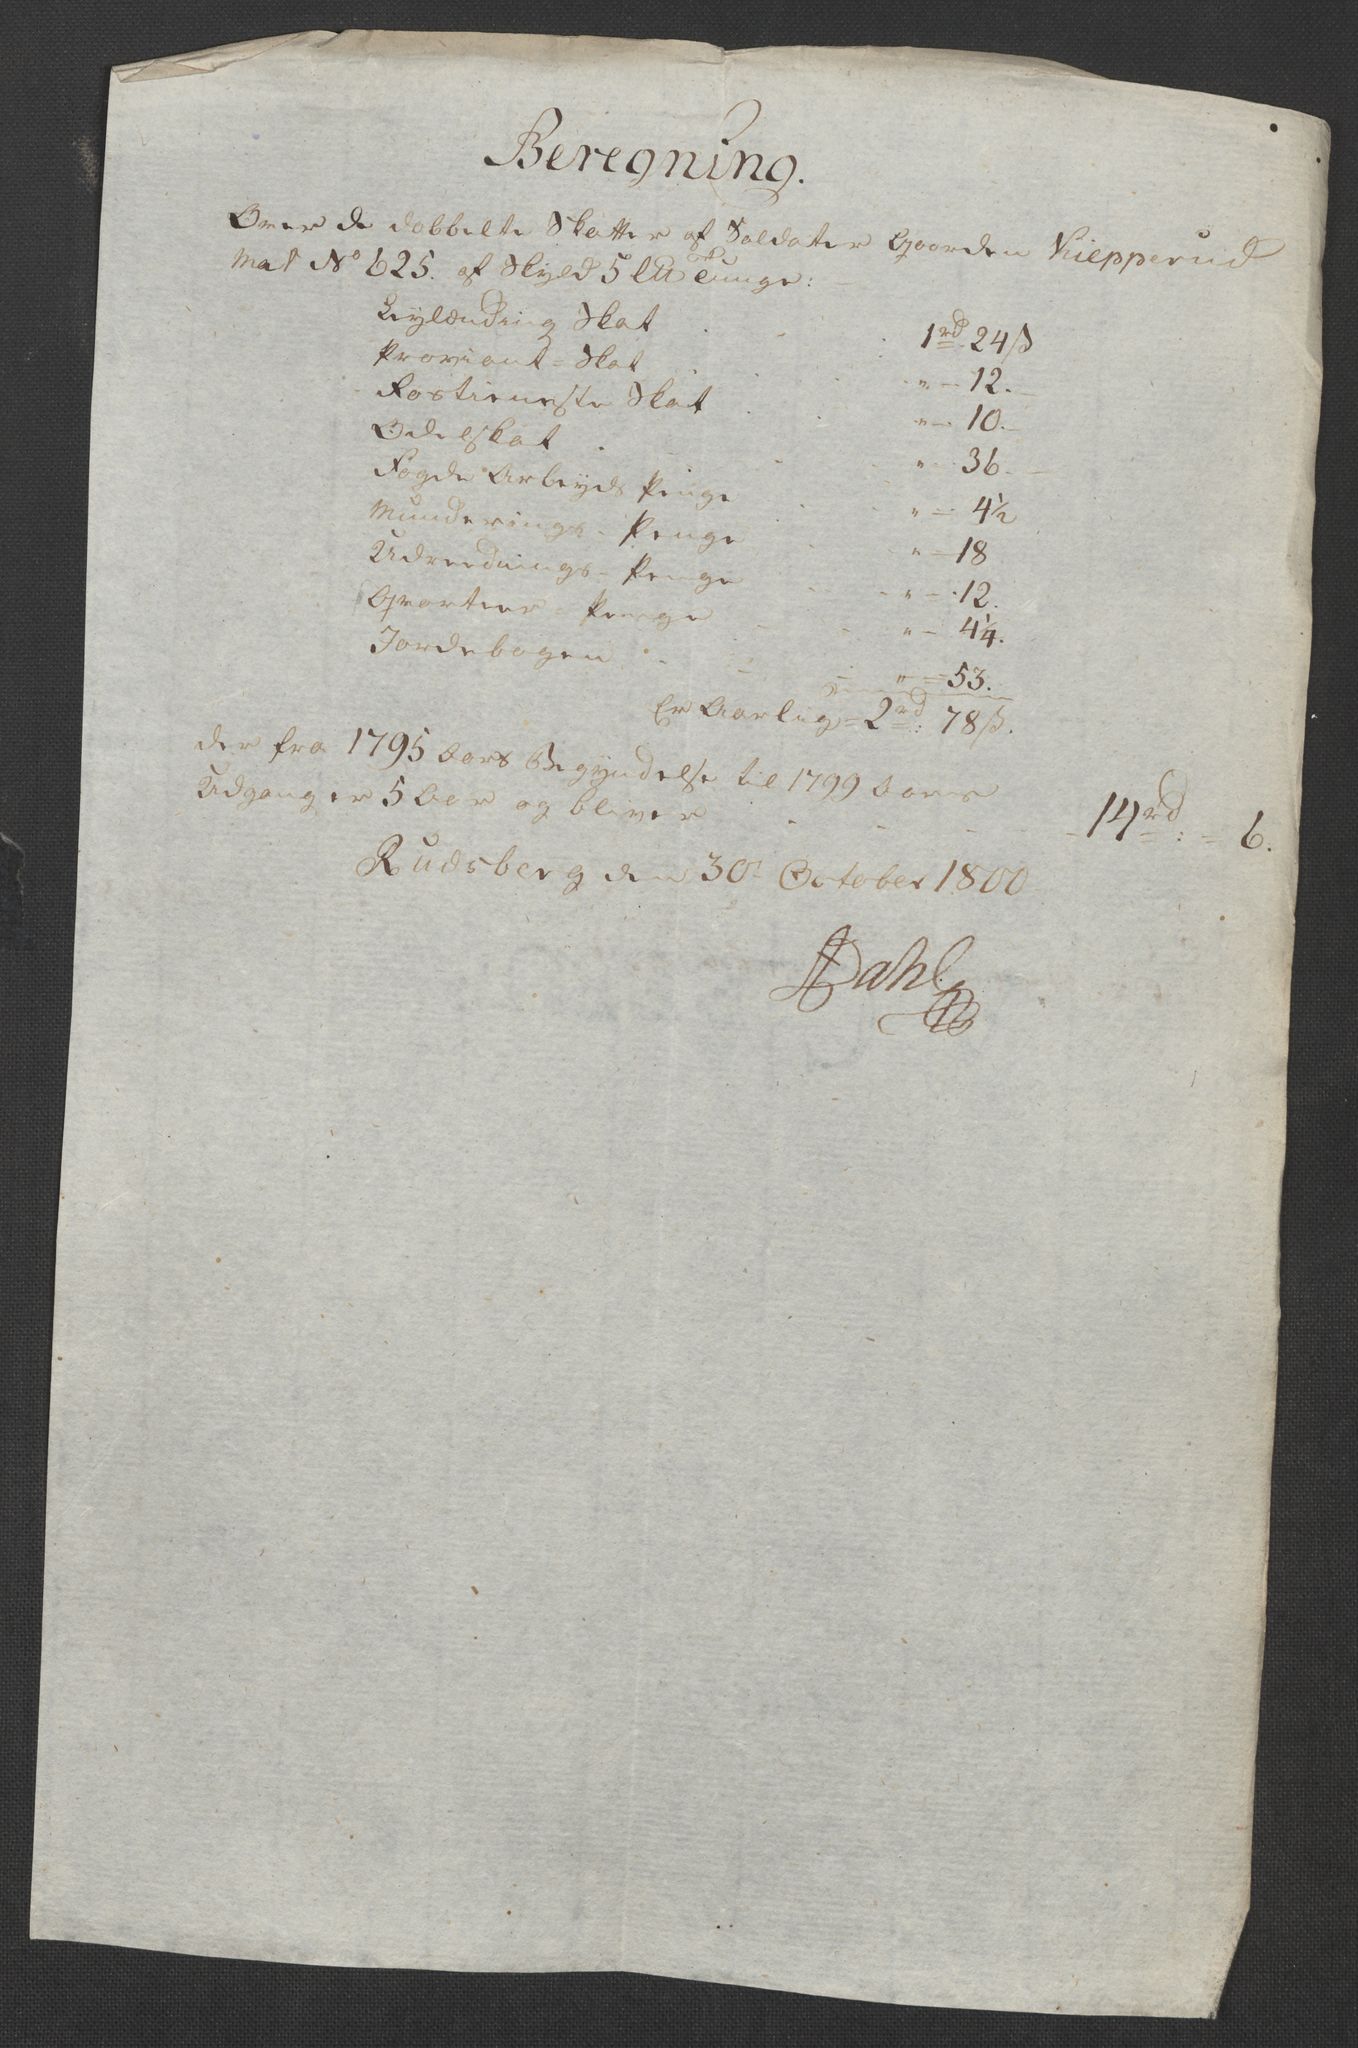 Beregning.
Over de dobbelte Skatter af Soldater Gaarden Kiepperud
Mat No 625. af Skyld 5 L℔ Tunge:
Leylænding Skat 1 rd 24 ß
Proviant-Skat " - 12.
Rostieneste Skat " - 10.
Odelskat " - 36.
Fogde Arbeyds Penge " - 4½
Munderings-Penge " - 18
Udrednings-Penge " - 12.
Qvarteer-Penge " - 4¼.
Jordebogen " - 53.
Er Aarlig = 2 rd: 78 ß.
der fra 1795 Aars Begyndelse til 1799 Aars
Udgang er 5 Aar og bliver - - - - 14 rd: = 6.
Rudsberg den 30t October 1800
Dahl